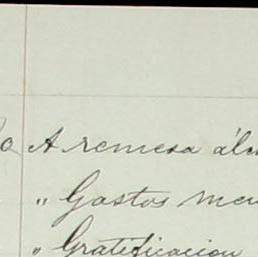 A remesa
" Gastos
" Gratificacion